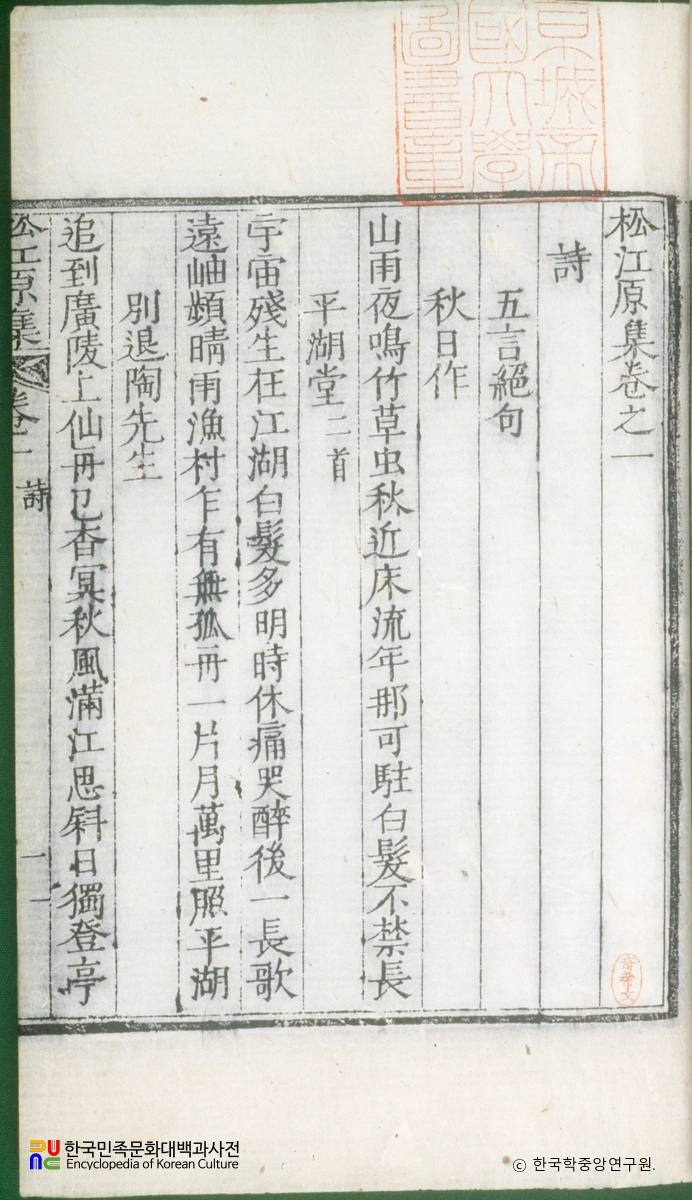 京城帝
國大學
圖書章
松江原集卷之一
詩
五言絕句
秋日作
山雨夜鳴竹草虫秋近床流年那可駐白髮不禁長
平湖堂二首
宇宙殘生在江湖白髮多明時休痛哭醉後一長歌
遠岫頻晴雨漁村乍有無孤舟一片月萬里照平湖
別退陶先生
追到廣陵上仙舟已杳冥秋風滿江思斜日獨登亭
松江原集 卷之一 詩 一
한국민족문화대백과사전
Encyclopedia of Korean Culture
© 한국학중앙연구원.